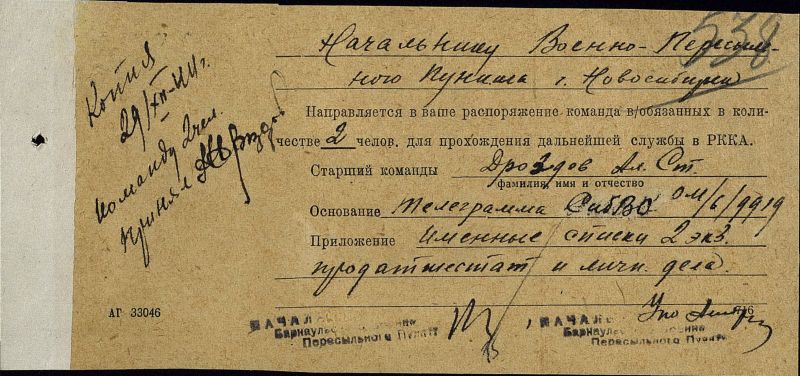 538
Копия
29/XII-41 г.
Команду 2 чел.
принял
Начальнику Военно-Пересыль-
ного Пункта г. Новосибирск
Направляется в ваше распоряжение команда в/обязанных в коли-
честве 2 челов. для прохождения дальнейшей службы в РККА.
Старший команды Дроздов Ал. Ст.
фамилия, имя и отчество
Основание телеграмма СибВО ОМ/6/9919
Приложение именные списки 2 экз.
продаттестат и личн. дела.
АГ 33046
НАЧАЛ
Барнаульс
Пересыльного Пункта
НАЧАЛ
Барнаульс
Пересыльного Пункта